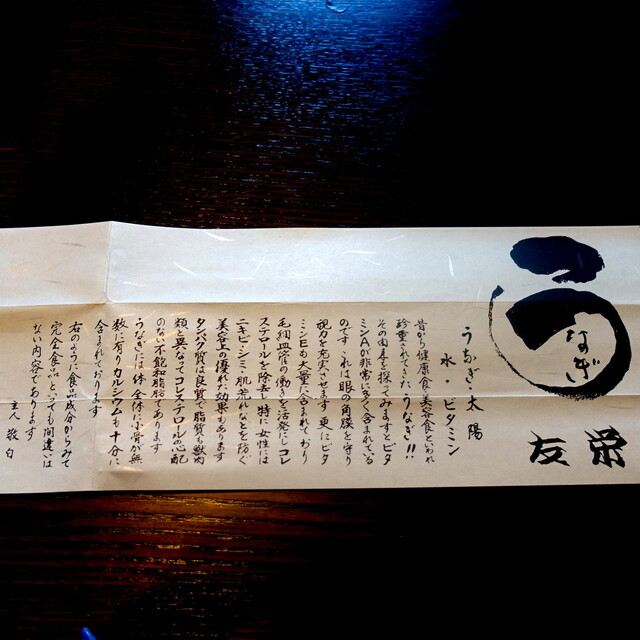 うなぎ
友栄
うなぎ・太陽
水・ビタミン
昔から健康食・美容食といわれ
珍重されてきたうなぎ!!
その由来を探ってみますとビタ
ミンAが非常に多く含まれている
のです これは眼の角膜を守り
視力を充実させます 更にビタ
ミンEも大量に含まれており
毛細血管の働きを活発にしコレ
ステロールを除き 特に女性には
ニキビ・シミ・肌荒れなどを防ぐ
美容上の優れた効果もあります
タンパク質は良質で脂質も獣肉
類と異なってコレステロール心配
のない不飽和脂肪であります
うなぎには一体全体に小骨が無
数に有りカルシウムも十分に
含まれております
右のように食品成分からみて
完全食品といっても間違いは
ない内容であります
主人 敬白